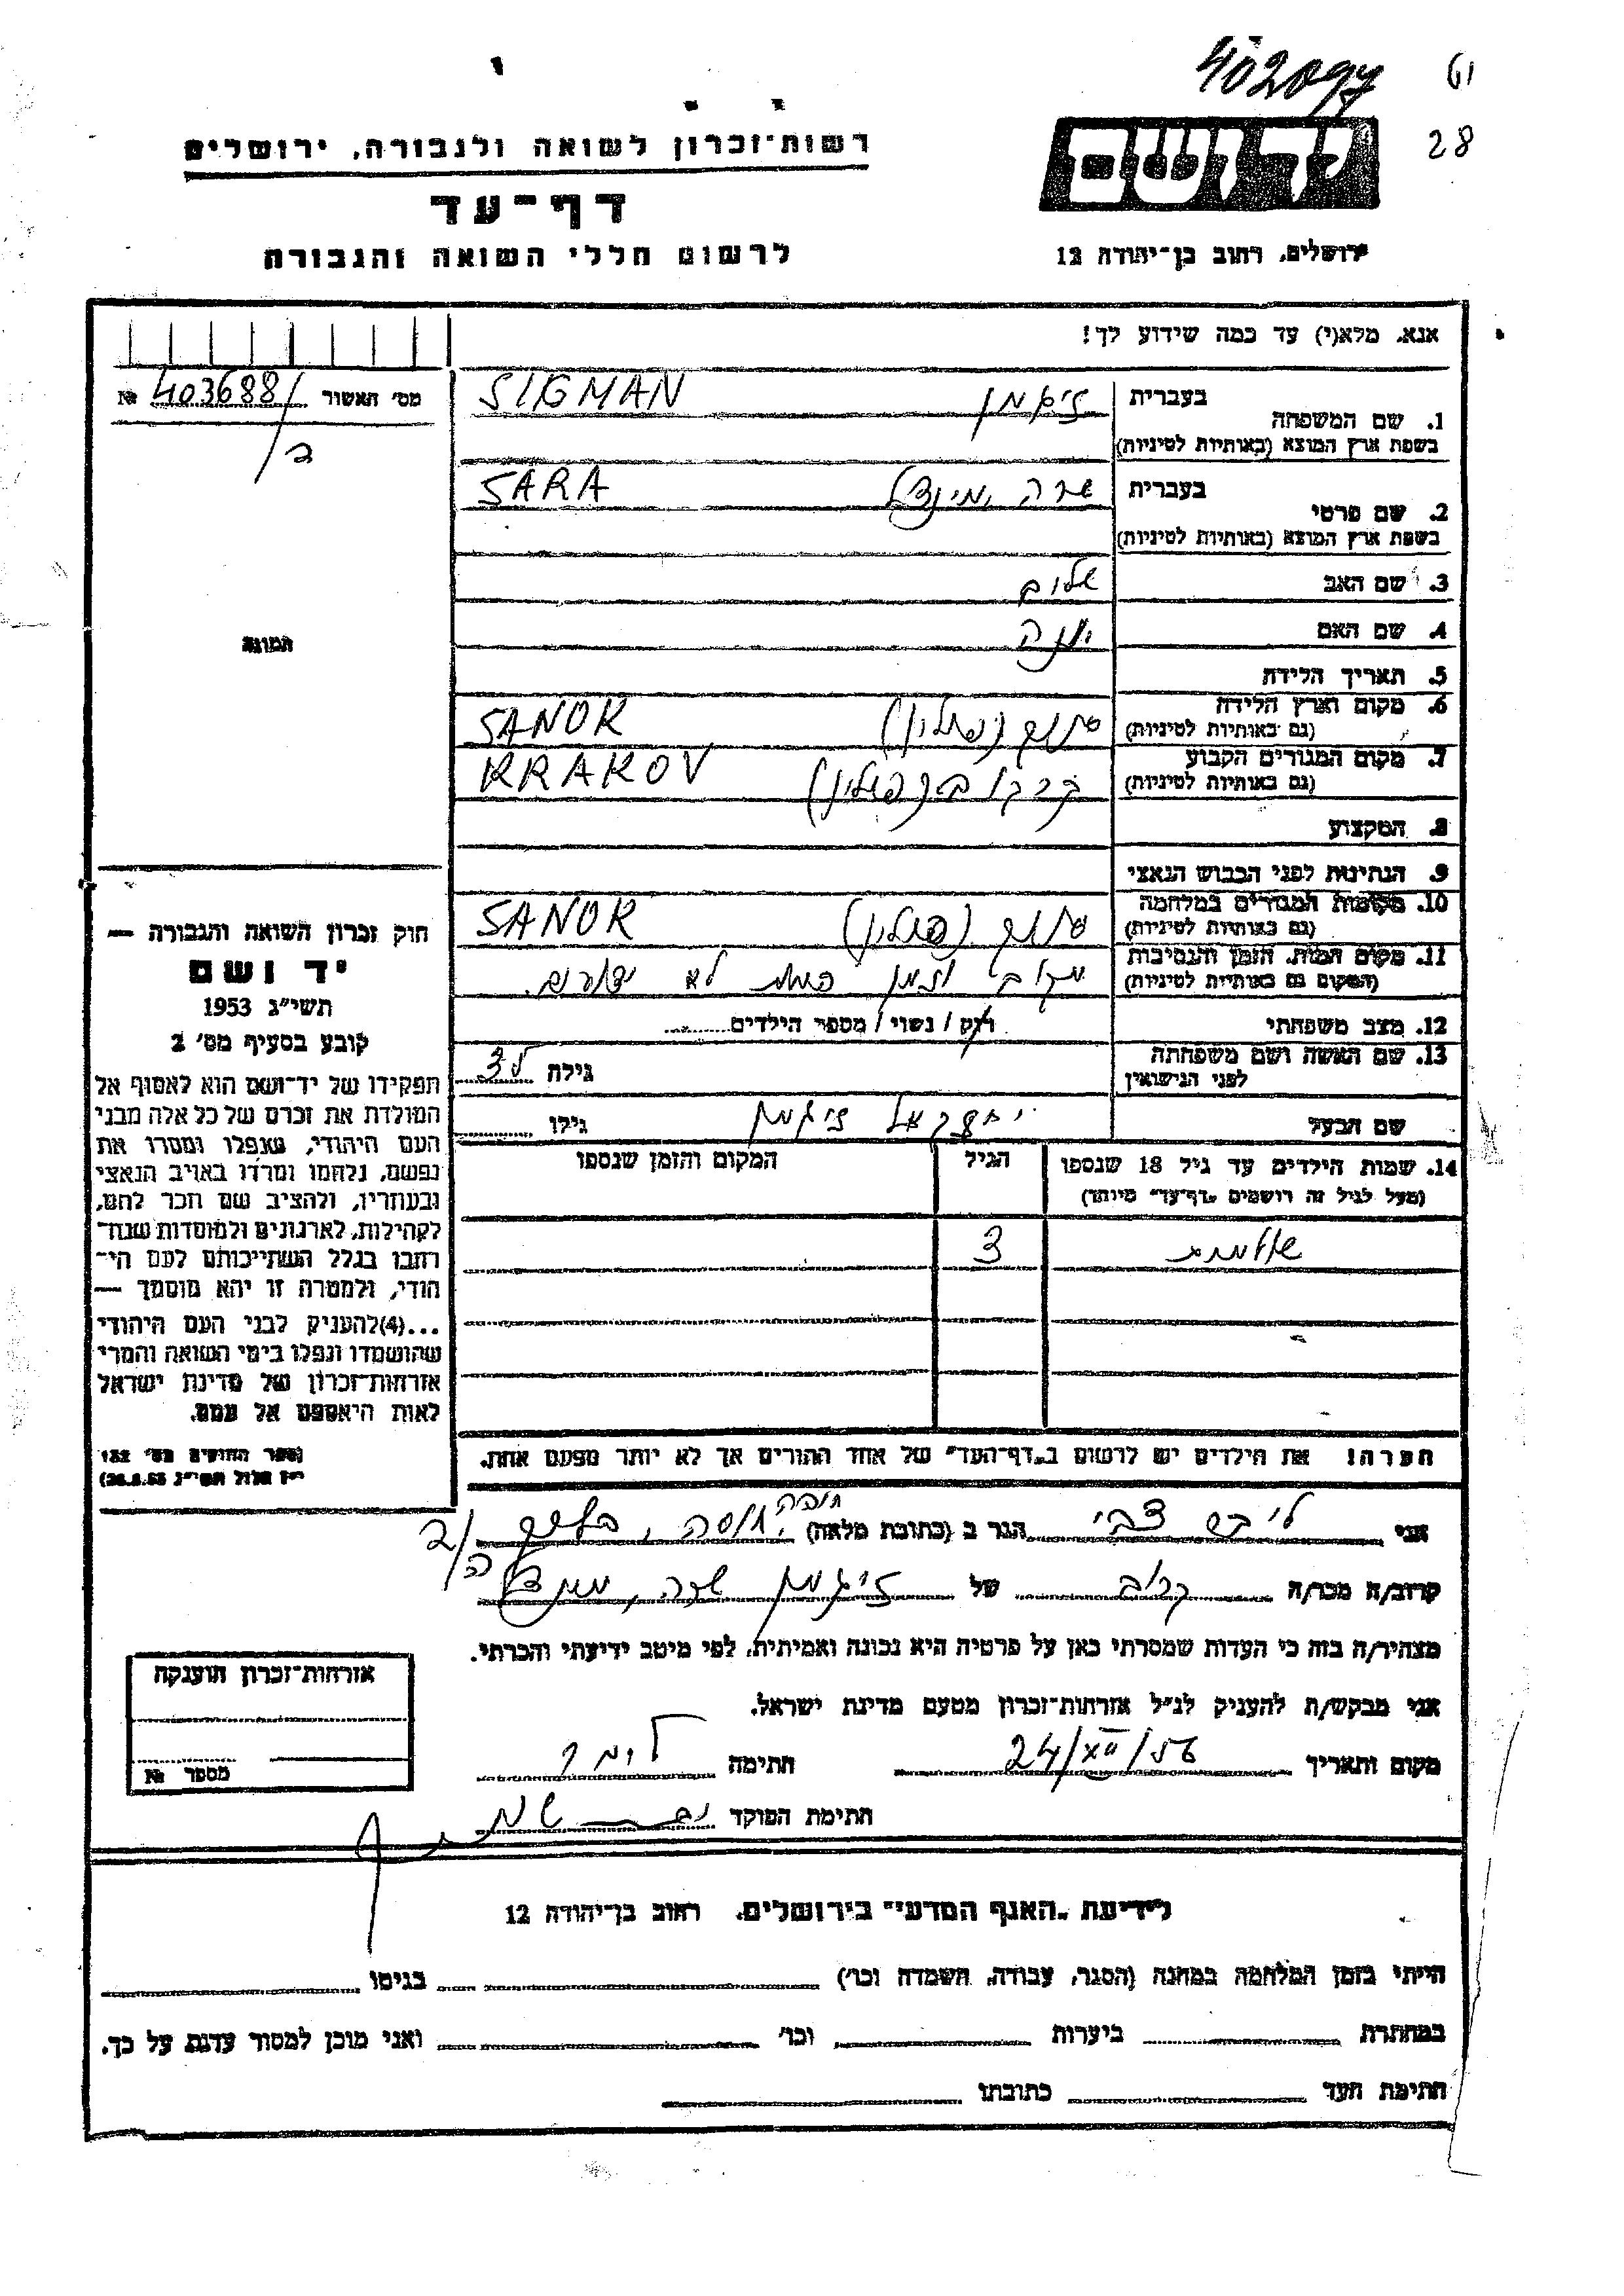 402097
28
רשות־זכרון לשואה ולגבורה, ירושלים
ידושם
דף־עד
לרשום חללי השואה והגבורה
ירושלים, רחוב בן־יהודה 12
אנא, מלא(י) עד כמה שידוע לך!
מס׳ האשור № 403688/
ב/
1. שם המשפחה בעברית זיגמן SIGMAN
בשפת ארץ המוצא (באותיות לטיניות)
2. שם פרטי בעברית שרה, מינדל SARA
בשפת ארץ המוצא (באותיות לטיניות)
3. שם האב שלום
4. שם האם
תמונה
5. תאריך הלידה
6. מקום וארץ הלידה סנוק (פולין) SANOK
(גם באותיות לטיניות)
7. מקום המגורים הקבוע קרקוב (פולין) KRAKOV
(גם באותיות לטיניות)
8. המקצוע
9. הנתינות לפני הכבוש הנאצי
10. מקומות המגורים במלחמה סנוק (פולין) SANOK
(גם באותיות לטיניות)
11. מקום המות, הזמן והנסיבות מקום וזמן המות לא ידועים.
(המקום גם באותיות לטיניות)
12. מצב משפחתי רוק / נשוי / מספר הילדים
13. שם האשה ושם משפחתה גילה
לפני הנישואין
שם הבעל יחזקאל זיגמן גילו
14. שמות הילדים עד גיל 18 שנספו הגיל המקום והזמן שנספו
(מעל לגיל זה רושמים „דף־עד״ מיוחד)
שולמית 3
חוק זכרון השואה והגבורה —
יד ושם
תשי״ג 1953
קובע בסעיף מס׳ 2
תפקידו של יד־ושם הוא לאסוף אל
המולדת את זכרם של כל אלה מבני
העם היהודי, שנפלו ומסרו את
נפשם, נלחמו ומרדו באויב הנאצי
ובעוזריו, ולהציב שם וזכר להם,
לקהילות, לארגונים ולמוסדות שנח־
רבו בגלל השתייכותם לעם הי־
הודי, ולמטרה זו יהא מוסמך —
...(4) להעניק לבני העם היהודי
שהושמדו ונפלו בימי השואה והמרי
אזרחות־זכרון של מדינת ישראל
לאות היאספם אל עמם.
(ספר החוקים מס׳ 132
י״ז אלול תשי״ג 28.8.53)
הערה! את הילדים יש לרשום ב„דף־העד״ של אחד ההורים אך לא יותר מפעם אחת.
אני צבי הגר ב (כתובת מלאה)
קרוב/ה מכר/ה קרוב של זיגמן שרה, מינדל
מצהיר/ה בזה כי העדות שמסרתי כאן על פרטיה היא נכונה ואמיתית, לפי מיטב ידיעתי והכרתי.
אני מבקש/ת להעניק לנ״ל אזרחות־זכרון מטעם מדינת ישראל.
מקום ותאריך 24/XII/56 חתימה
חתימת הפוקד
אזרחות־זכרון הוענקה
מספר №
לידיעת „האגף המדעי״ בירושלים, רחוב בן־יהודה 12
הייתי בזמן המלחמה במחנה (הסגר, עבודה, השמדה וכו׳) בגיטו
במחתרת ביערות וכו׳ ואני מוכן למסור עדות על כך.
חתימת העד כתובתו